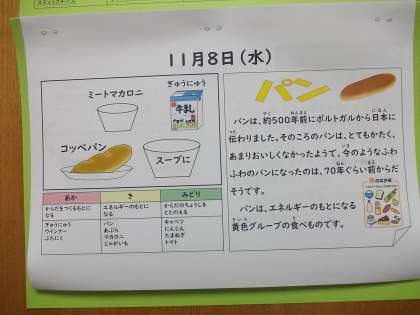 スティックチーズ
11月8日(水)
ミートマカロニ
ぎゅうにゅう
牛乳
コッペパン
スープに
あか
き
みどり
からだをつくるもとに
なる
エネルギーのもとに
なる
からだのちょうしを
ととのえる
ぎゅうにゅう
ウインナー
ぶたにく
パン
あぶら
マカロニ
じゃがいも
キャベツ
にんじん
たまねぎ
トマト
パン
パンは、約500年前にポルトガルから日本に
伝わりました。そのころのパンは、とてもかたく、
あまりおいしくなかったようで、今のようなふわ
ふわのパンになったのは、70年ぐらい前からだ
そうです。
パンは、エネルギーのもとになる
黄色グループの食べものです。